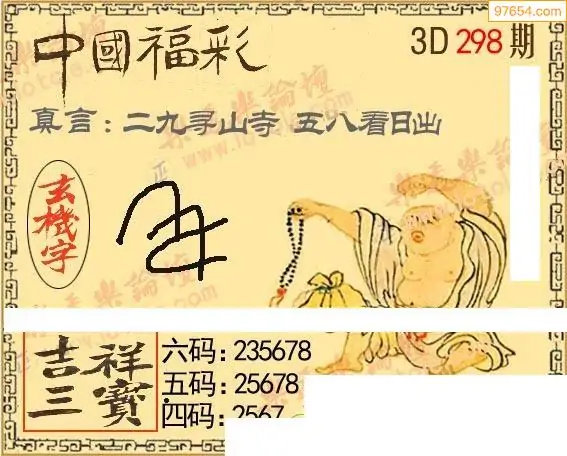 97654.com
中國福彩
3D 298 期
真言：二九寻山寺 五八看日出
玄機字
吉祥三寶
六码：235678
五码：25678
四码：2567